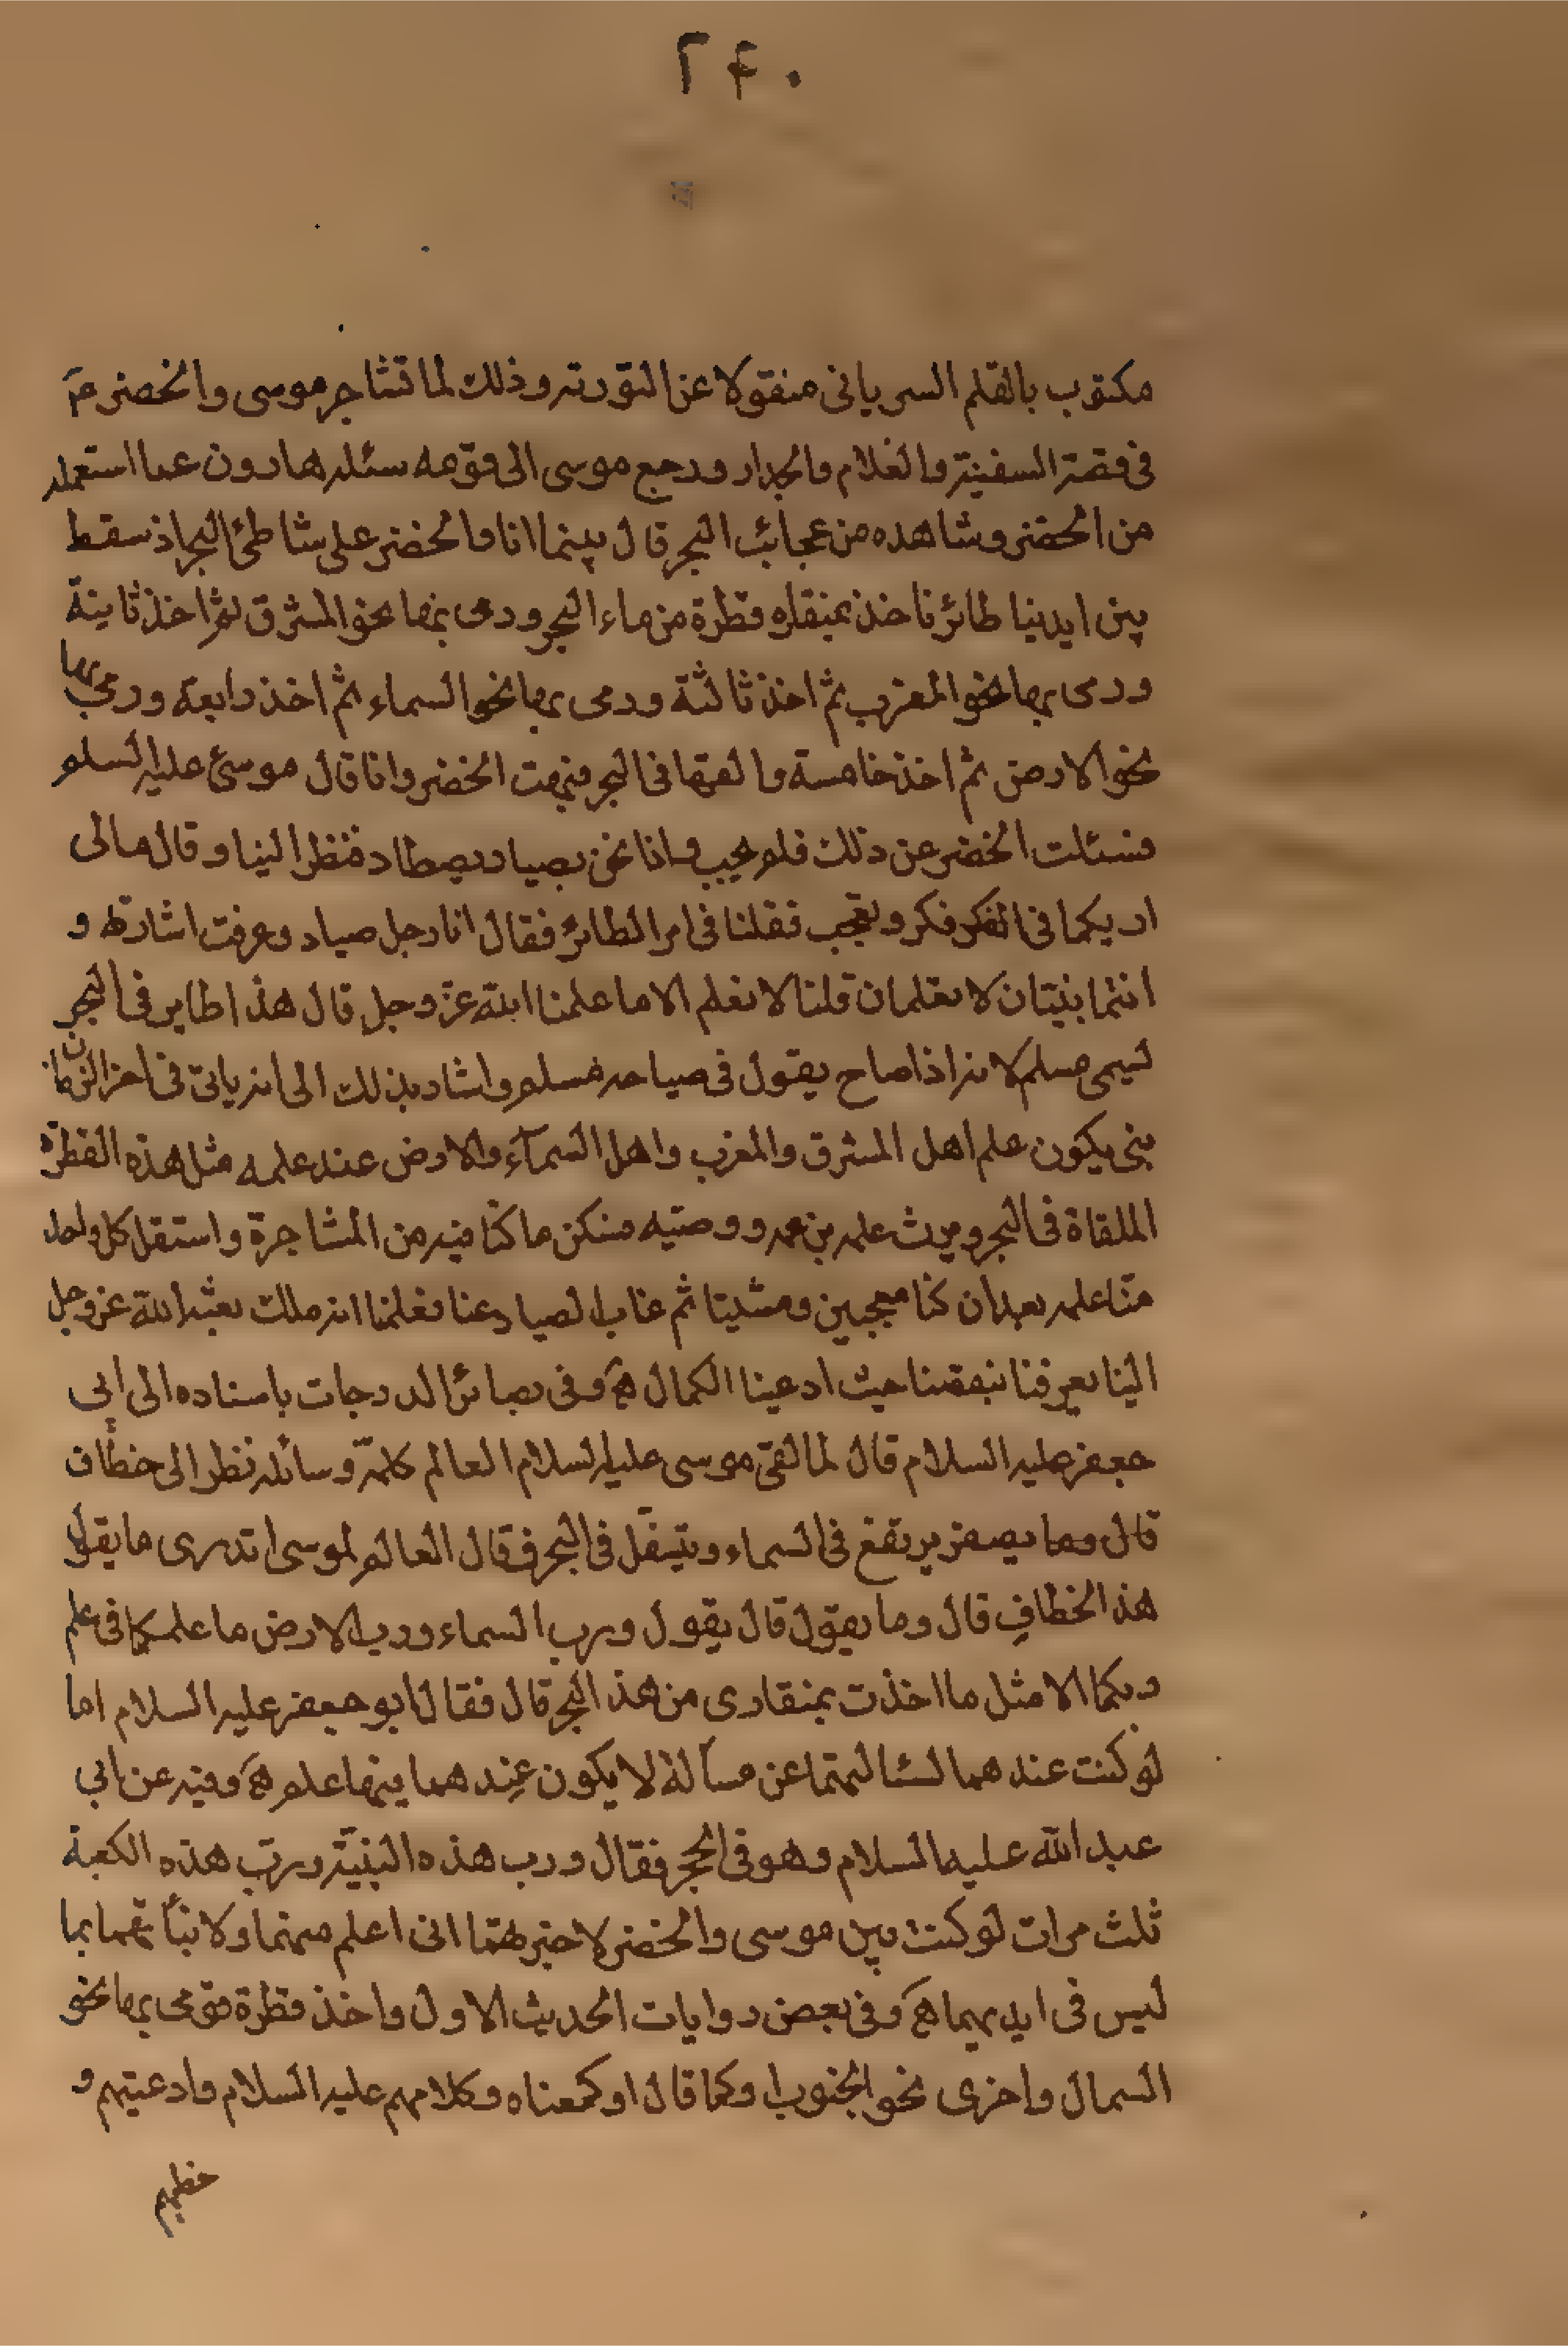 ۲۴۰
مكتوب بالقلم السرياني منقولا عن التورته وذلك لما تشاجر موسى والخضر عم
في قصة السفينة والغلام والجدار ورجع موسى الى قومه سئله هارون عما استعمله
من الخضر وشاهده من عجائب البحر قال بينما انا والخضر على شاطئ البحر اذ سقط
بين ايدينا طائر فاخذ بمنقاره قطرة من ماء البحر ورمى بها نحو المشرق ثم اخذ ثانية
ورمى بها نحو المغرب ثم اخذ ثالثة ورمى بها نحو السماء ثم اخذ رابعة ورمى بها
نحو الارض ثم اخذ خامسة والقها في البحر فبهت الخضر وانا قال موسى عليه السلم
فسئلت الخضر عن ذلك فلم يجيب واذا نحن بصياد يصطاد فنظر الينا وقال مالى
اريكما في الفكر فكر وتعجب فقلنا في امر الطائر فقال انا رجل صياد وعرفت اشارته و
انتما بنيتان لا تعلمان قلنا لا نعلم الا ما علمنا الله عز وجل قال هذا طاير في البحر
ليسمى مسلم لانه اذا صاح يقول في صياحه مسلم واشار بذلك الى انه ياتى في اخر الزمان
نبى يكون علم اهل المشرق والمغرب واهل السمآء والارض عند علمه مثل هذه القطرة
الملقاة في البحر ويرث علمه بن عمه ووصيه فسكن ما كنا فيه من المشاجرة واستقل كل واحد
منا علمه بعد ان كنا معجبين ومشينا ثم غاب الصياد عنا فعلمنا انه ملك بعثه الله عز وجل
الينا يعرفنا بنقصنا حيث ادعينا الكمال هَ وفي بصائر الدرجات باسناده الى ابي
جعفر عليه السلام قال لما لقى موسى عليه السلام العالم كلمه وسائله نظر الى خطاف
قال وما يصفر يرتفع في السماء ويتسفل في البحر فقال العالم لموسى اتدرى ما يقول
هذا الخطاف قال وما يقول قال يقول ورب السماء ورب الارض ما علمكما في علم
ربكما الا مثل ما اخذت بمنقارى من هذا البحر قال فقال ابو جعفر عليه السلام اما
لو كنت عندهما لسئالتهما عن مسآلة لا يكون عندهما فيها علم هَ وفيه عن ابي
عبد الله عليه السلام وهو في الحجر فقال ورب هذه البنيّة ورب هذه الكعبة
ثلث مرات لو كنت بين موسى والخضر لاخبرهتما انى اعلم منهما ولانبأتهما بما
ليس في ايديهما هَ وفي بعض روايات الحديث الاول واخذ قطرة فرمى بها نحو
السمال واخرى نحو الجنوب او كما قال او كمعناه وكلامهم عليه السلام وادعيتهم و
خطبهم